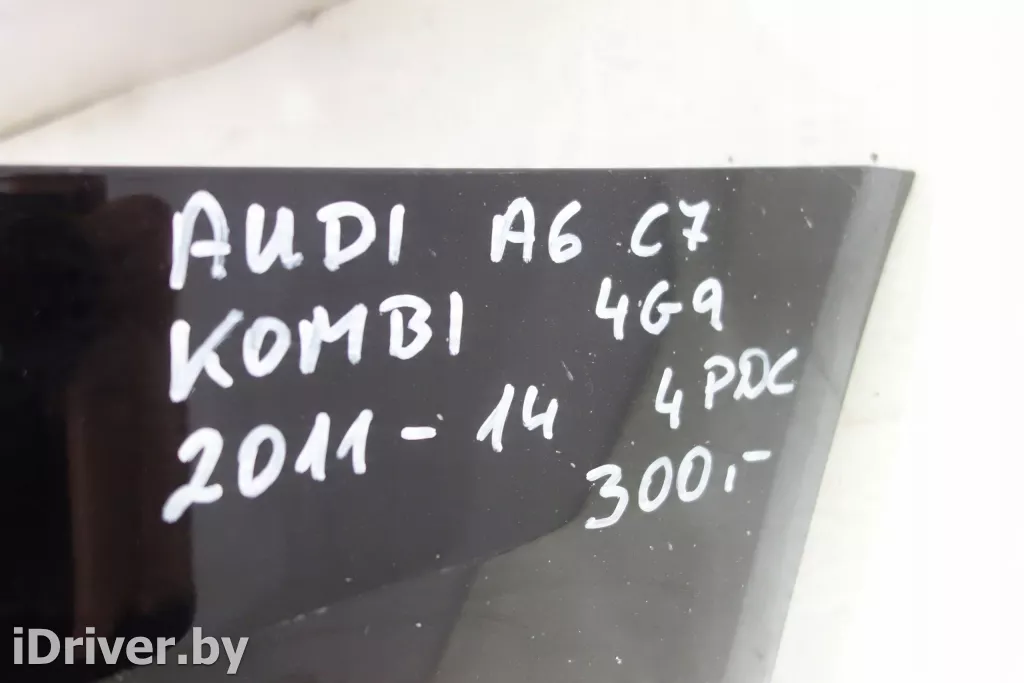 AUDI A6 C7
KOMBI 4G9
2011-14 4 PDC
300,-
iDriver.by